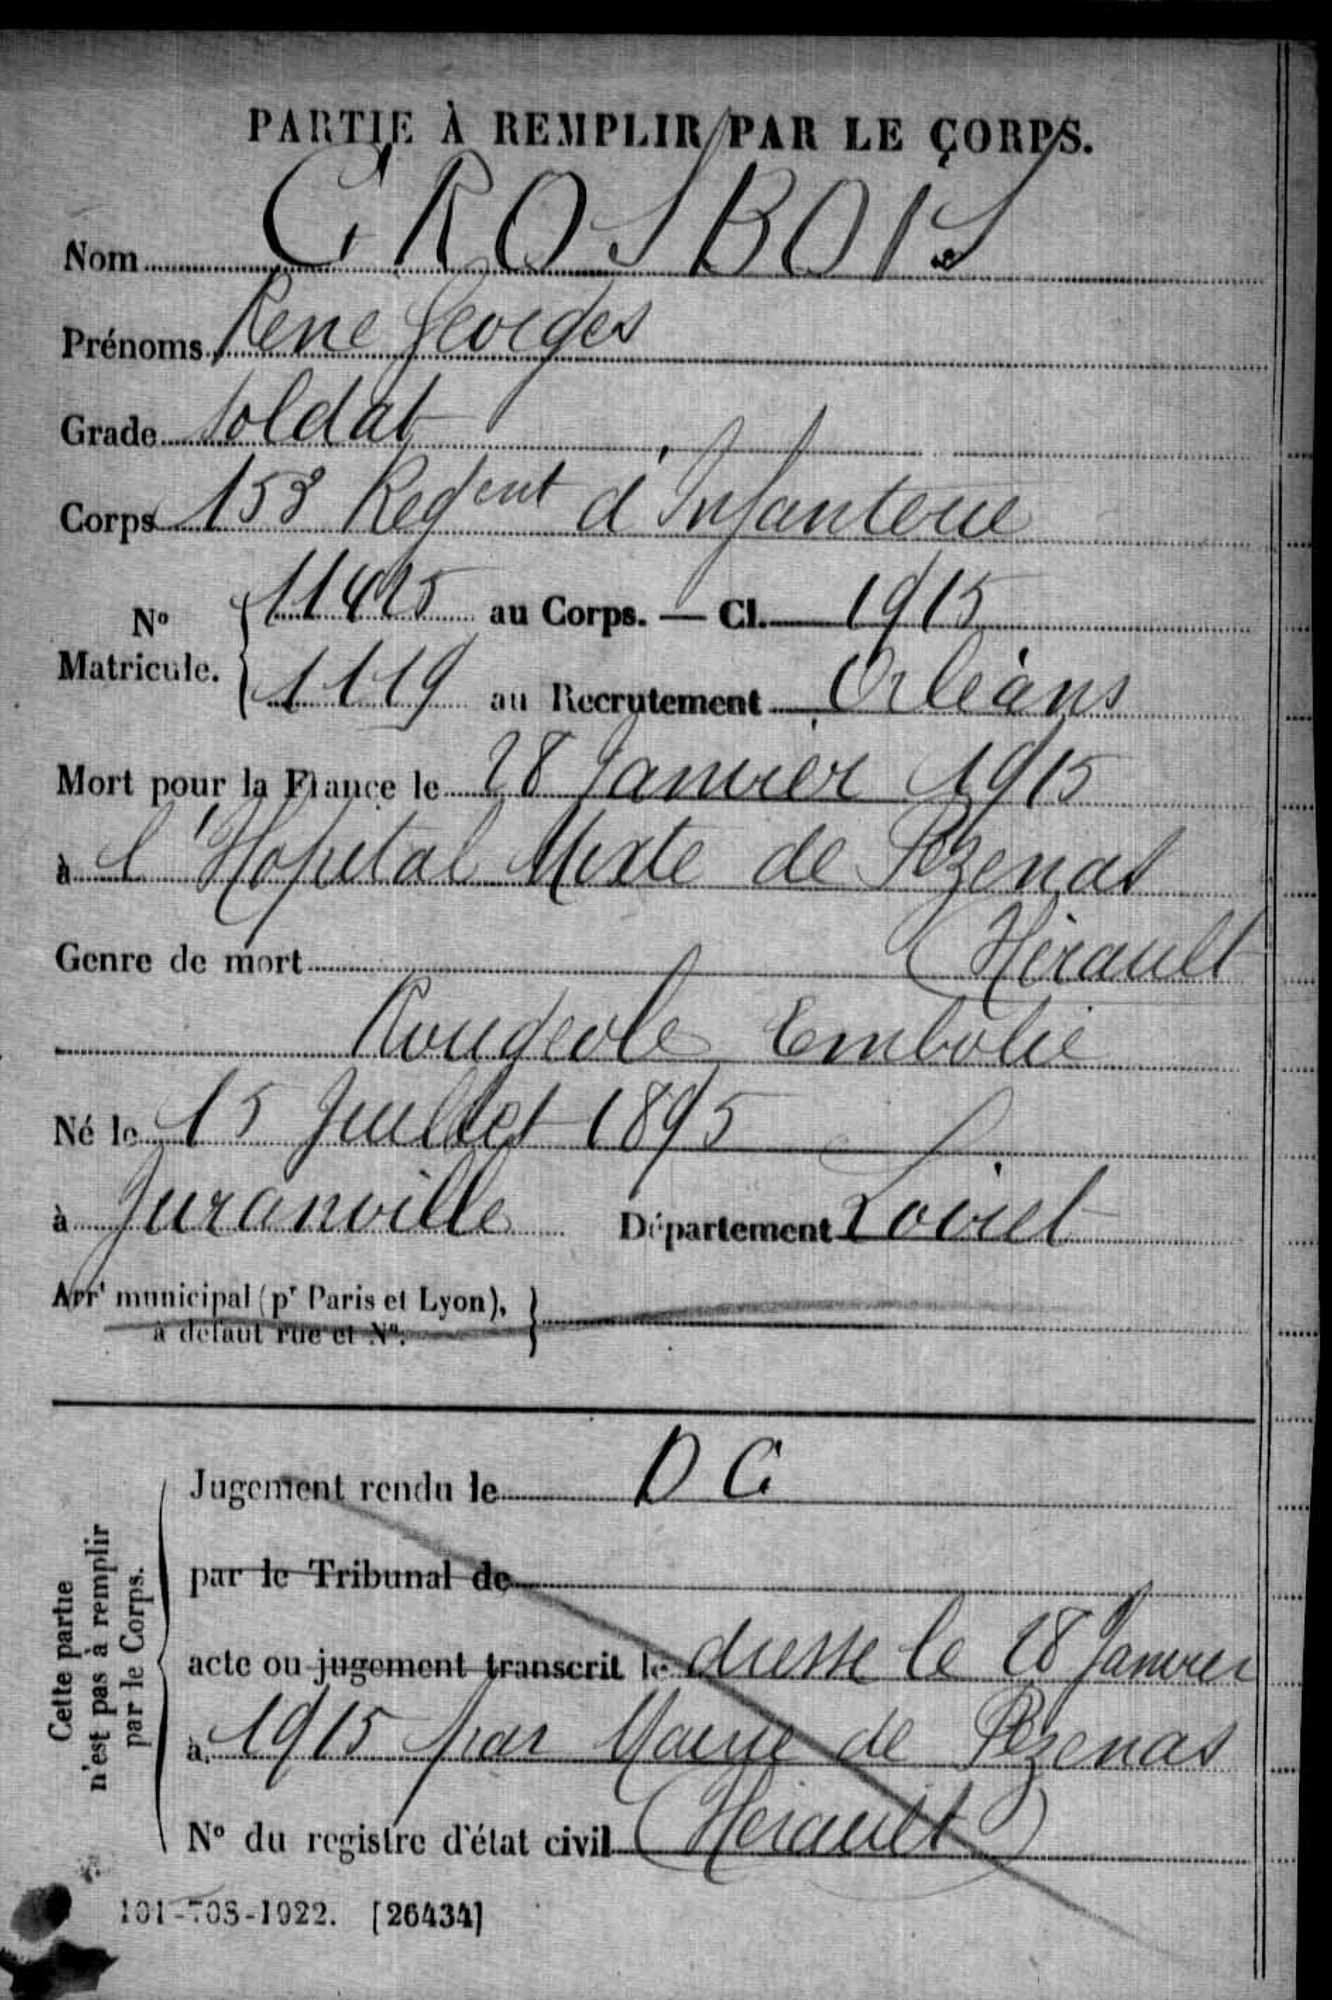 PARTIE À REMPLIR PAR LE CORPS.
Nom GROSBOIS
Prénoms René Georges
Grade Soldat
Corps 153 Regent d'Infanterie
11425 au Corps. — Cl. 1915
No
Matricule.
1119 au Recrutement Orléans
Mort pour la France le 28 Janvier 1915
à l'Hopital Mixte de Pezenas
Genre de mort (Hérault
Rougeole Embolie
Né le 15 Juillet 1895
à Juranville Département Loiret
Arrt municipal (pr Paris et Lyon),
à défaut rue et No.
Jugement rendu le D C
par le Tribunal de
acte ou jugement transcrit le dresse le 28 Janvier
à 1915 par Mairie de Pezenas
No du registre d'état civil (Herault)
Cette partie
n'est pas à remplir
par le Corps.
101-708-1922. [26434]